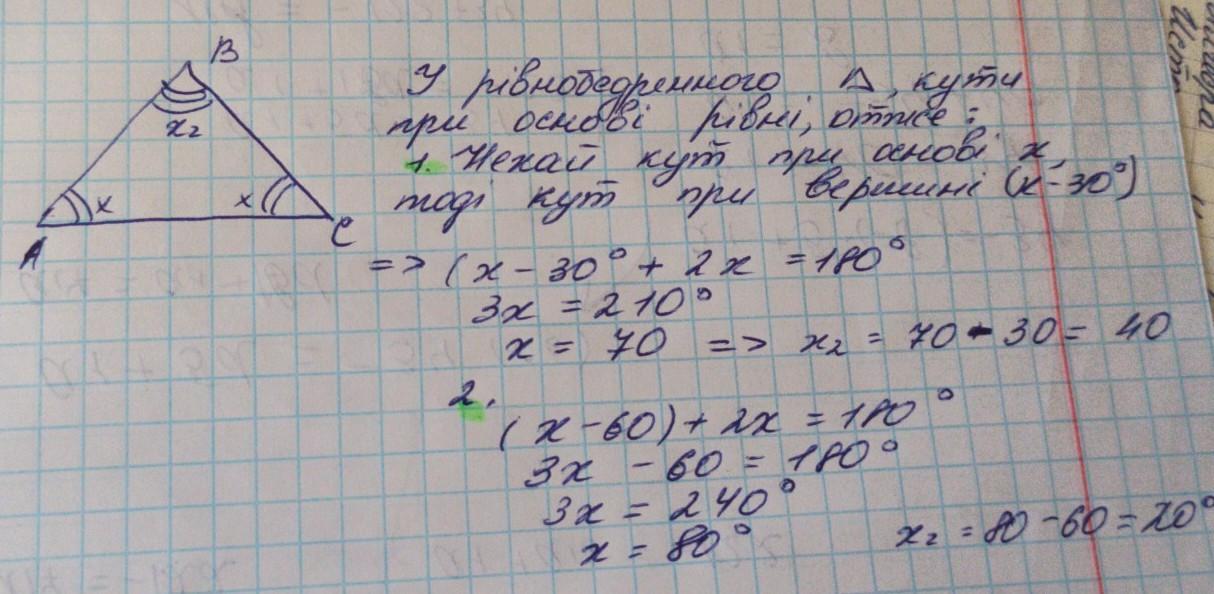 B
x₂
x
x
A
C
У рівнобедренного Δ, кути
при основі рівні, отже:
1. Нехай кут при основі x,
тоді кут при вершині (x-30°)
=> (x - 30° + 2x = 180°
3x = 210°
x = 70 => x₂ = 70 - 30 = 40
2.
(x - 60) + 2x = 180°
3x - 60 = 180°
3x = 240°
x = 80°
x₂ = 80 - 60 = 20°